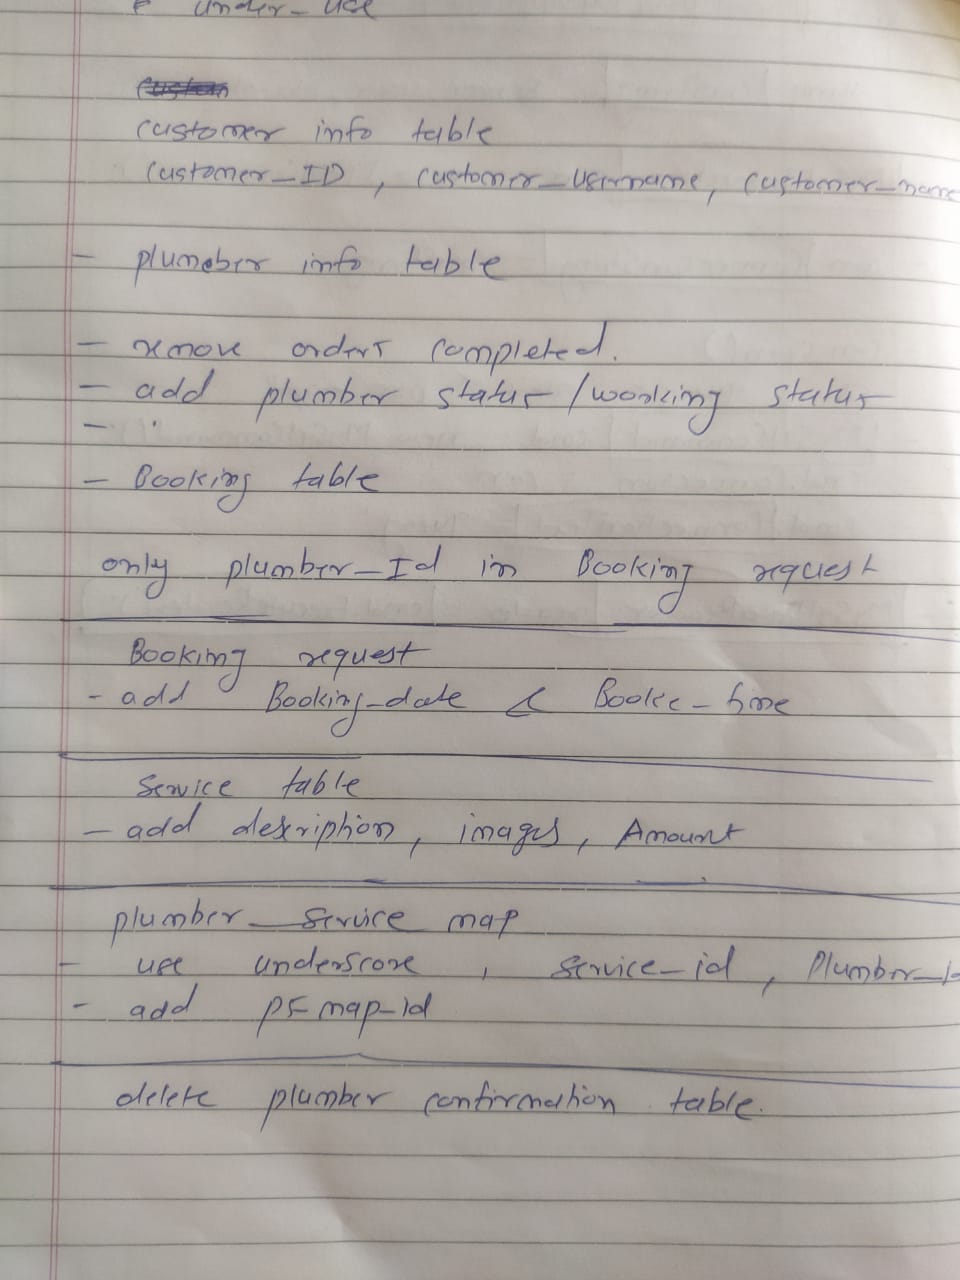 under_use
customer info table
Customer_ID , customer_username, customer_name
- plumeber info table
- remove orders completed.
- add plumber status /working status
-
- Booking table
only plumber_Id in Booking request
Booking request
- add Booking_date & Booke_time
Service table
- add description, images, Amount
plumber_service map
- use underscore , service_id, Plumber_id
- add ps_map_id
delete plumber confirmation table.